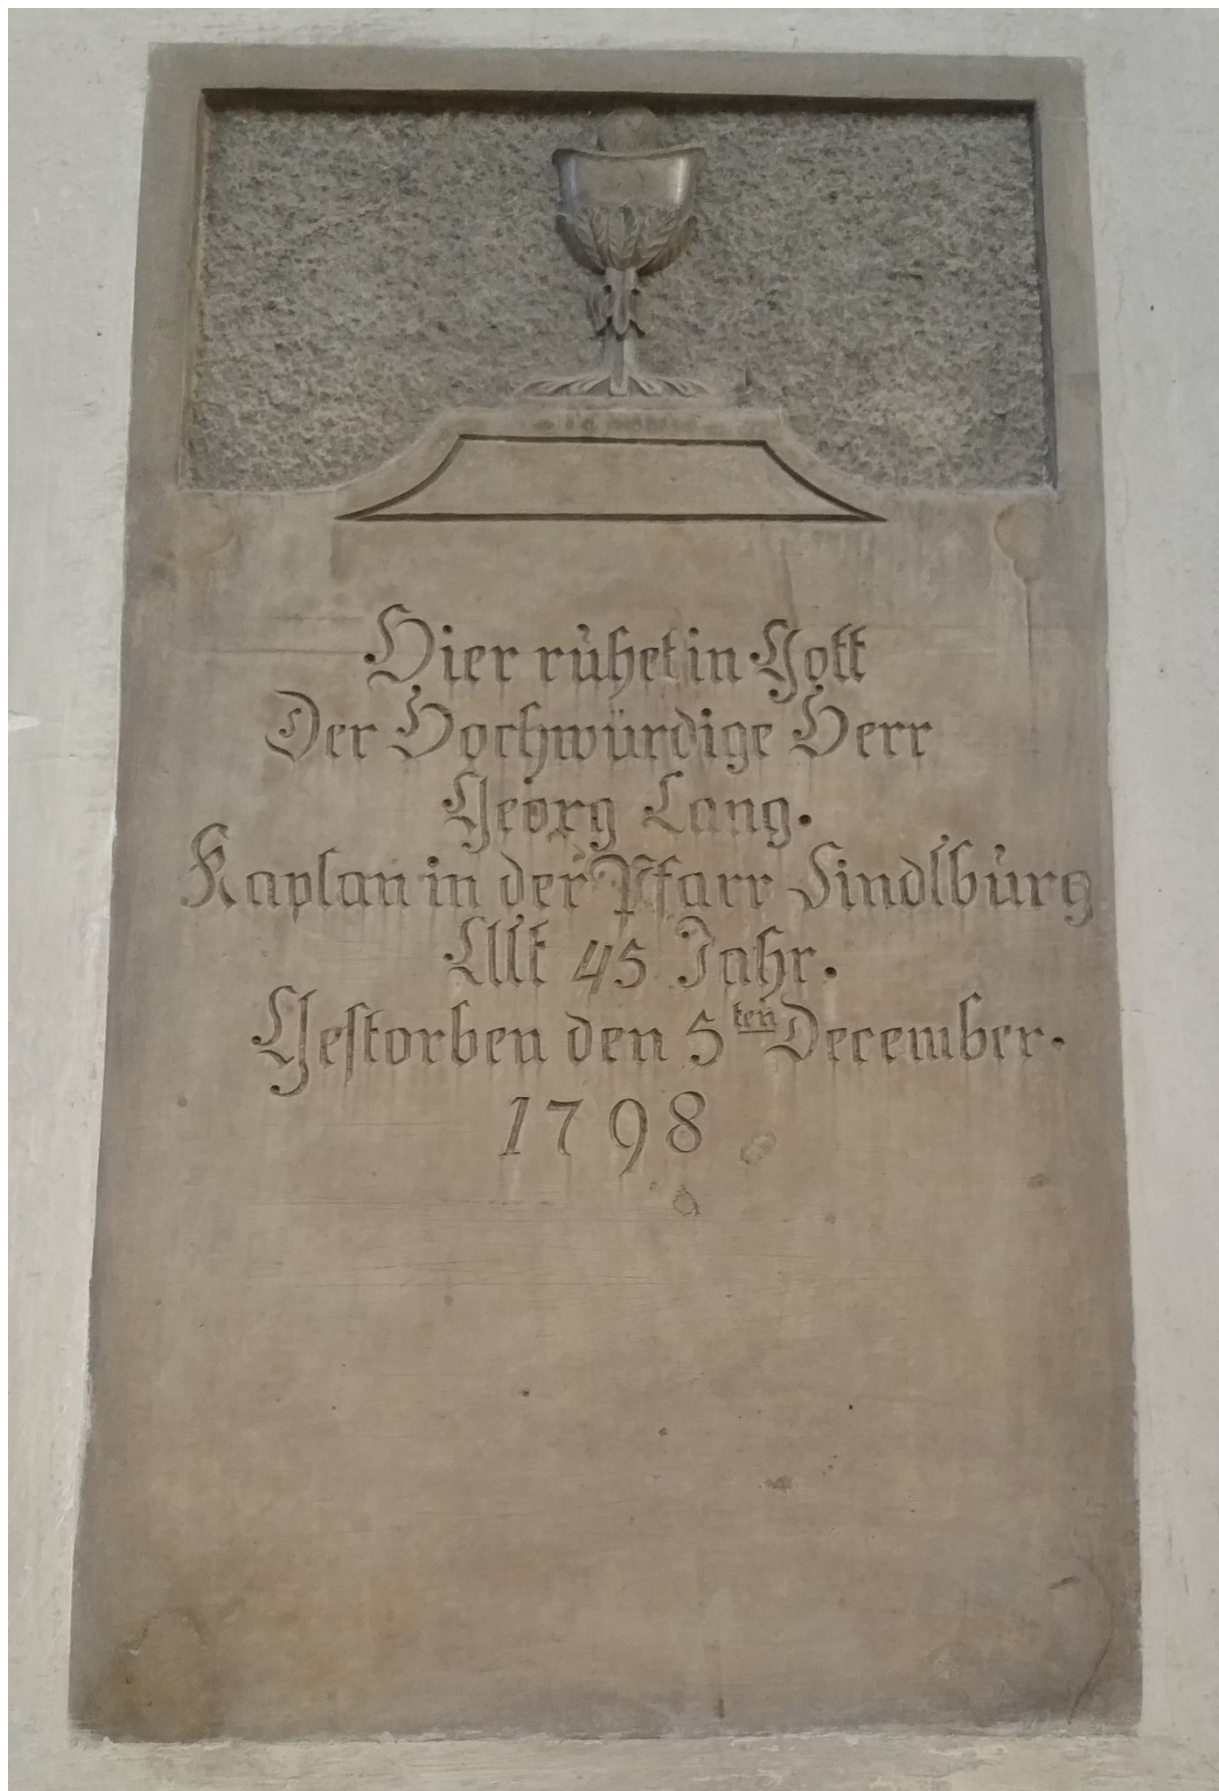 Hier ruhet in Gott
Der Hochwürdige Herr
Georg Lang.
Kaplan in der Pfarr Sindlburg
Alt 45 Jahr.
Gestorben den 5ten December.
1798